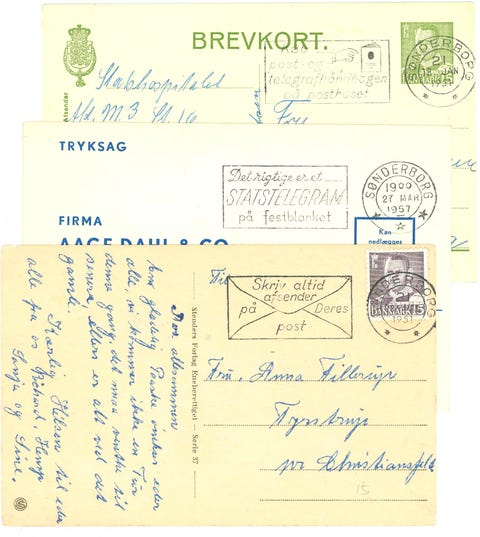 BREVKORT.
Køb
post- og
telegrafhåndbogen
på posthuset
SØNDERBORG
21
18 JAN
1951
Afsender
Statshospitalet
Afd. M3 St. 16
Fru
TRYKSAG
Det rigtige er et
STATSTELEGRAM
på festblanket
SØNDERBORG
19 00
27 MAR
1957
FIRMA
AAGE DAHL & CO.
Kan
nedlægges
Skriv altid
afsender
på Deres
post
DANMARK 15
SØNDERBORG
21
1951
Stenders Forlag Eneberettiget — Serie 37
Fru. Anna Fillerup
Tyrstrup
pr Christiansfeld
15
Kære allesammen
En glædelig Paaske ønskes eder
alle, vi kommer ikke en Tur
denne gang det maa vente til
senere, ellers er alt ved det
gamle.
Kærlig Hilsen til eder
alle fra os Richard, Henry
Sonja og Sine.